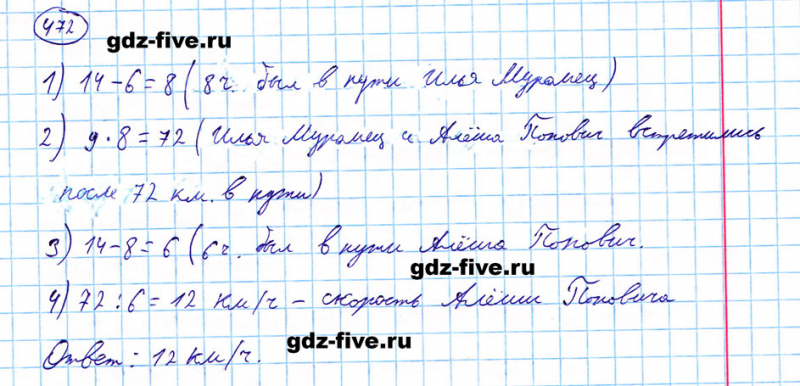 472
gdz-five.ru
1) 14-6=8 (8ч. был в пути Илья Муромец)
2) 9·8=72 (Илья Муромец и Алёша Попович встретились
после 72 км. в пути)
3) 14-8=6 (6ч. был в пути Алёша Попович.
gdz-five.ru
4) 72:6=12 км/ч - скорость Алёши Поповича
gdz-five.ru
Ответ: 12 км/ч.